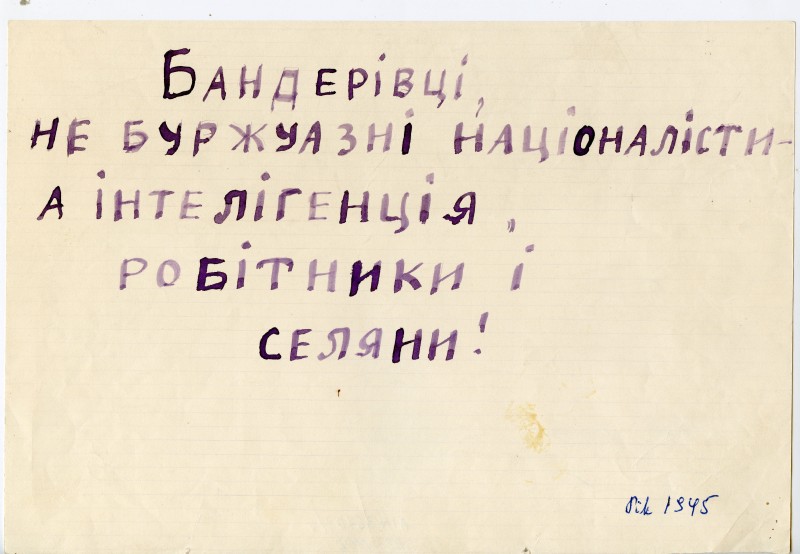 Бандерівці,
не буржуазні націоналісти-
а інтелігенція,
робітники і
селяни!
рік 1945